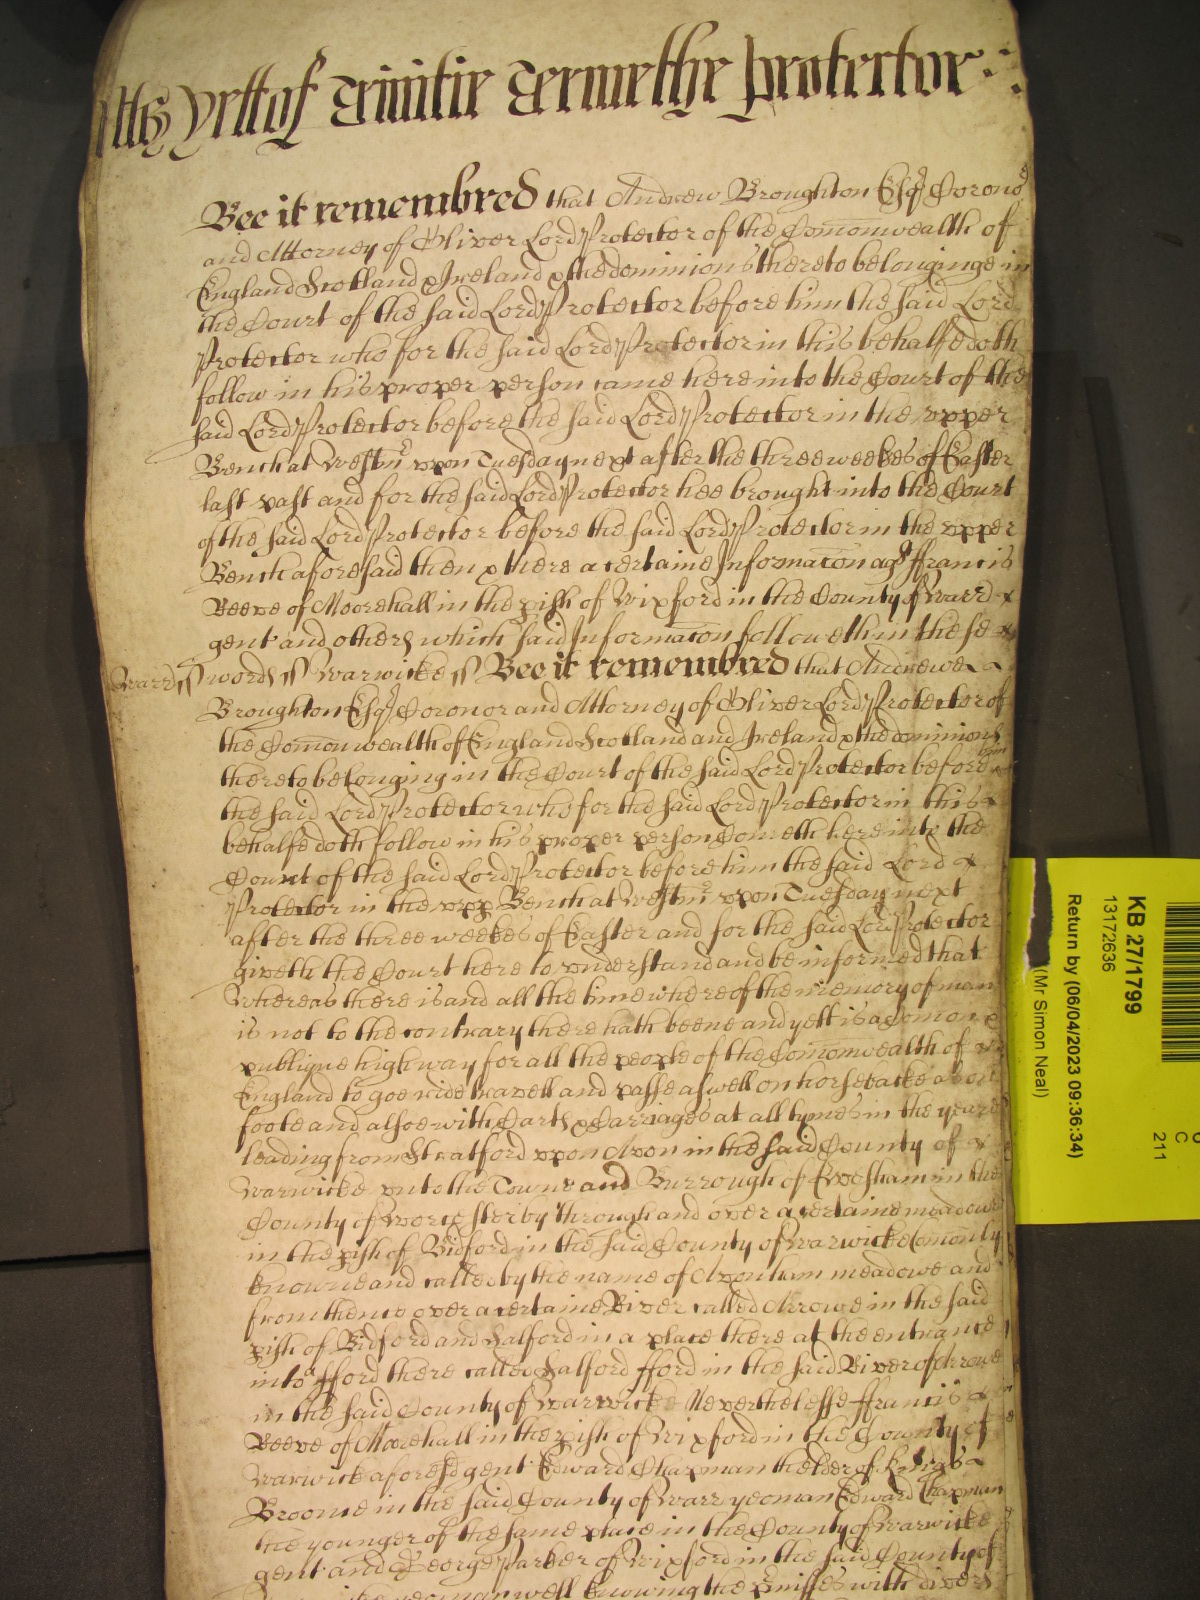 Yett of Trinitie Terme the Protector
Bee it remembred that Andrew Broughton Esqr Corono
and Attorney of Oliver Lord Protector of the Comonwealth of
England Scotland & Ireland & the dominions thereto belonginge in
the Court of the said Lord Protector before him the said Lord
Protector who for the said Lord Protector in this behalfe doth
follow in his proper person came here into the Court of the
said Lord Protector before the said Lord Protector in the vpper
Bench at Westmr vpon Tuesday next after the three weekes of Easter
last past and for the said Lord Protector hee brought into the Court
of the said Lord Protector before the said Lord Protector in the vpper
Bench aforesaid then & there a certaine Informacon agt ffrancis
Reeve of Moorehall in the pish of Wixford in the County of Warr
gent and others which said Informacon followeth in these
Warr ss words ss Warwicke ss Bee it remembred that Andrewe
Broughton Esqr Coronor and Attorney of Oliver Lord Protector of
the Comonwealth of England Scotland and Ireland & the dominions
thereto belonging in the Court of the said Lord Protector before him
the said Lord Protector who for the said Lord Protector in this
behalfe doth follow in his proper person Cometh here into the
Court of the said Lord Protector before him the said Lord
Protector in the vpp Bench at Westmr vpon Tuesday next
after the three weekes of Easter and for the said Lord Protector
giveth the Court here to vnderstand and be informed that
Whereas there is and all the time whereof the memory of man
is not to the contrary there hath beene and yett is a Comon &
publique high way for all the people of the Comonwealth of
England to goe ride travell and passe aswell on horsebacke as on
foote and alsoe with Carts & Carriages at all tymes in the yeare
leading from Stratford vpon Avon in the said County of
Warwicke vnto the Towne and Burrough of Evesham in the
County of Worcester by through and over a certaine meadowe
in the pish of Bidford in the said County of Warwicke Comonly
knowne and called by the name of meadowe and
from thence over a certaine River called Arrowe in the said
pish of Bidford and Salford in a place there at the entrance
into a fford there called Salford fford in the said River of Arrowe
in the said County of Warwicke Neverthelesse ffrancis
Reeve of Moorehall in the pish of Wixford in the County of
Warwick aforesd gent Edward Chapman the elder of Kings
Broome in the said County of Warr yeoman Edward Chapman
the younger of the same place in the County of Warwicke
gent and George Parker of Wixford in the said County of
yeoman well knowing the pmisses with divers
KB 27/1799
13172636
Return by (06/04/2023 09:36:34)
(Mr Simon Neal)
C
211